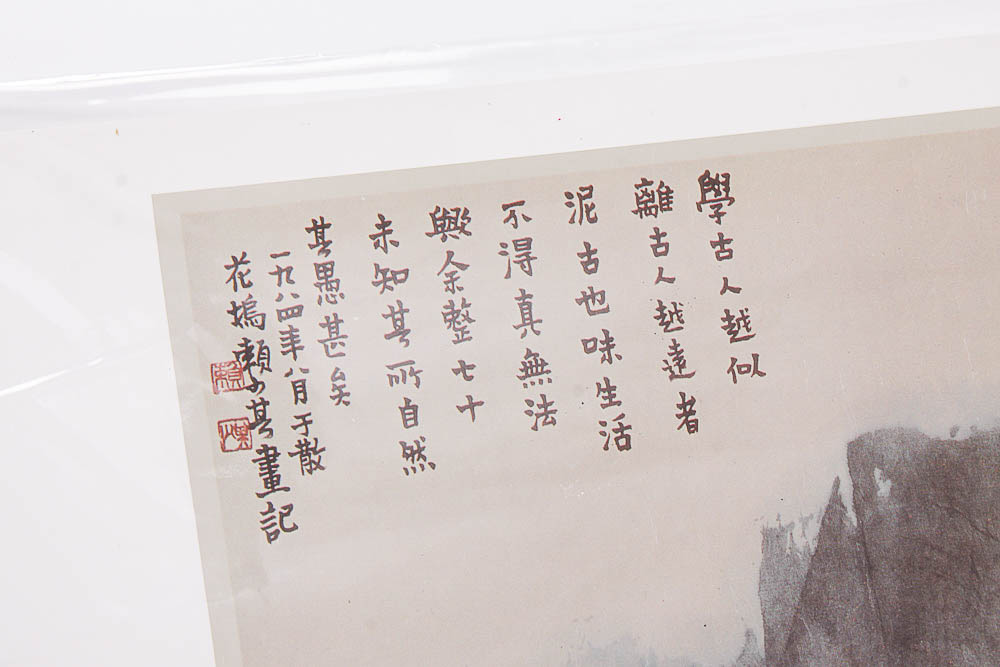 學古人越似
離古人越遠者
泥古也味生活
不得真無法
興余整七十
未知其所自然
其愚甚矣
一九八四年八月于散
花塢賴少其畫記
賴